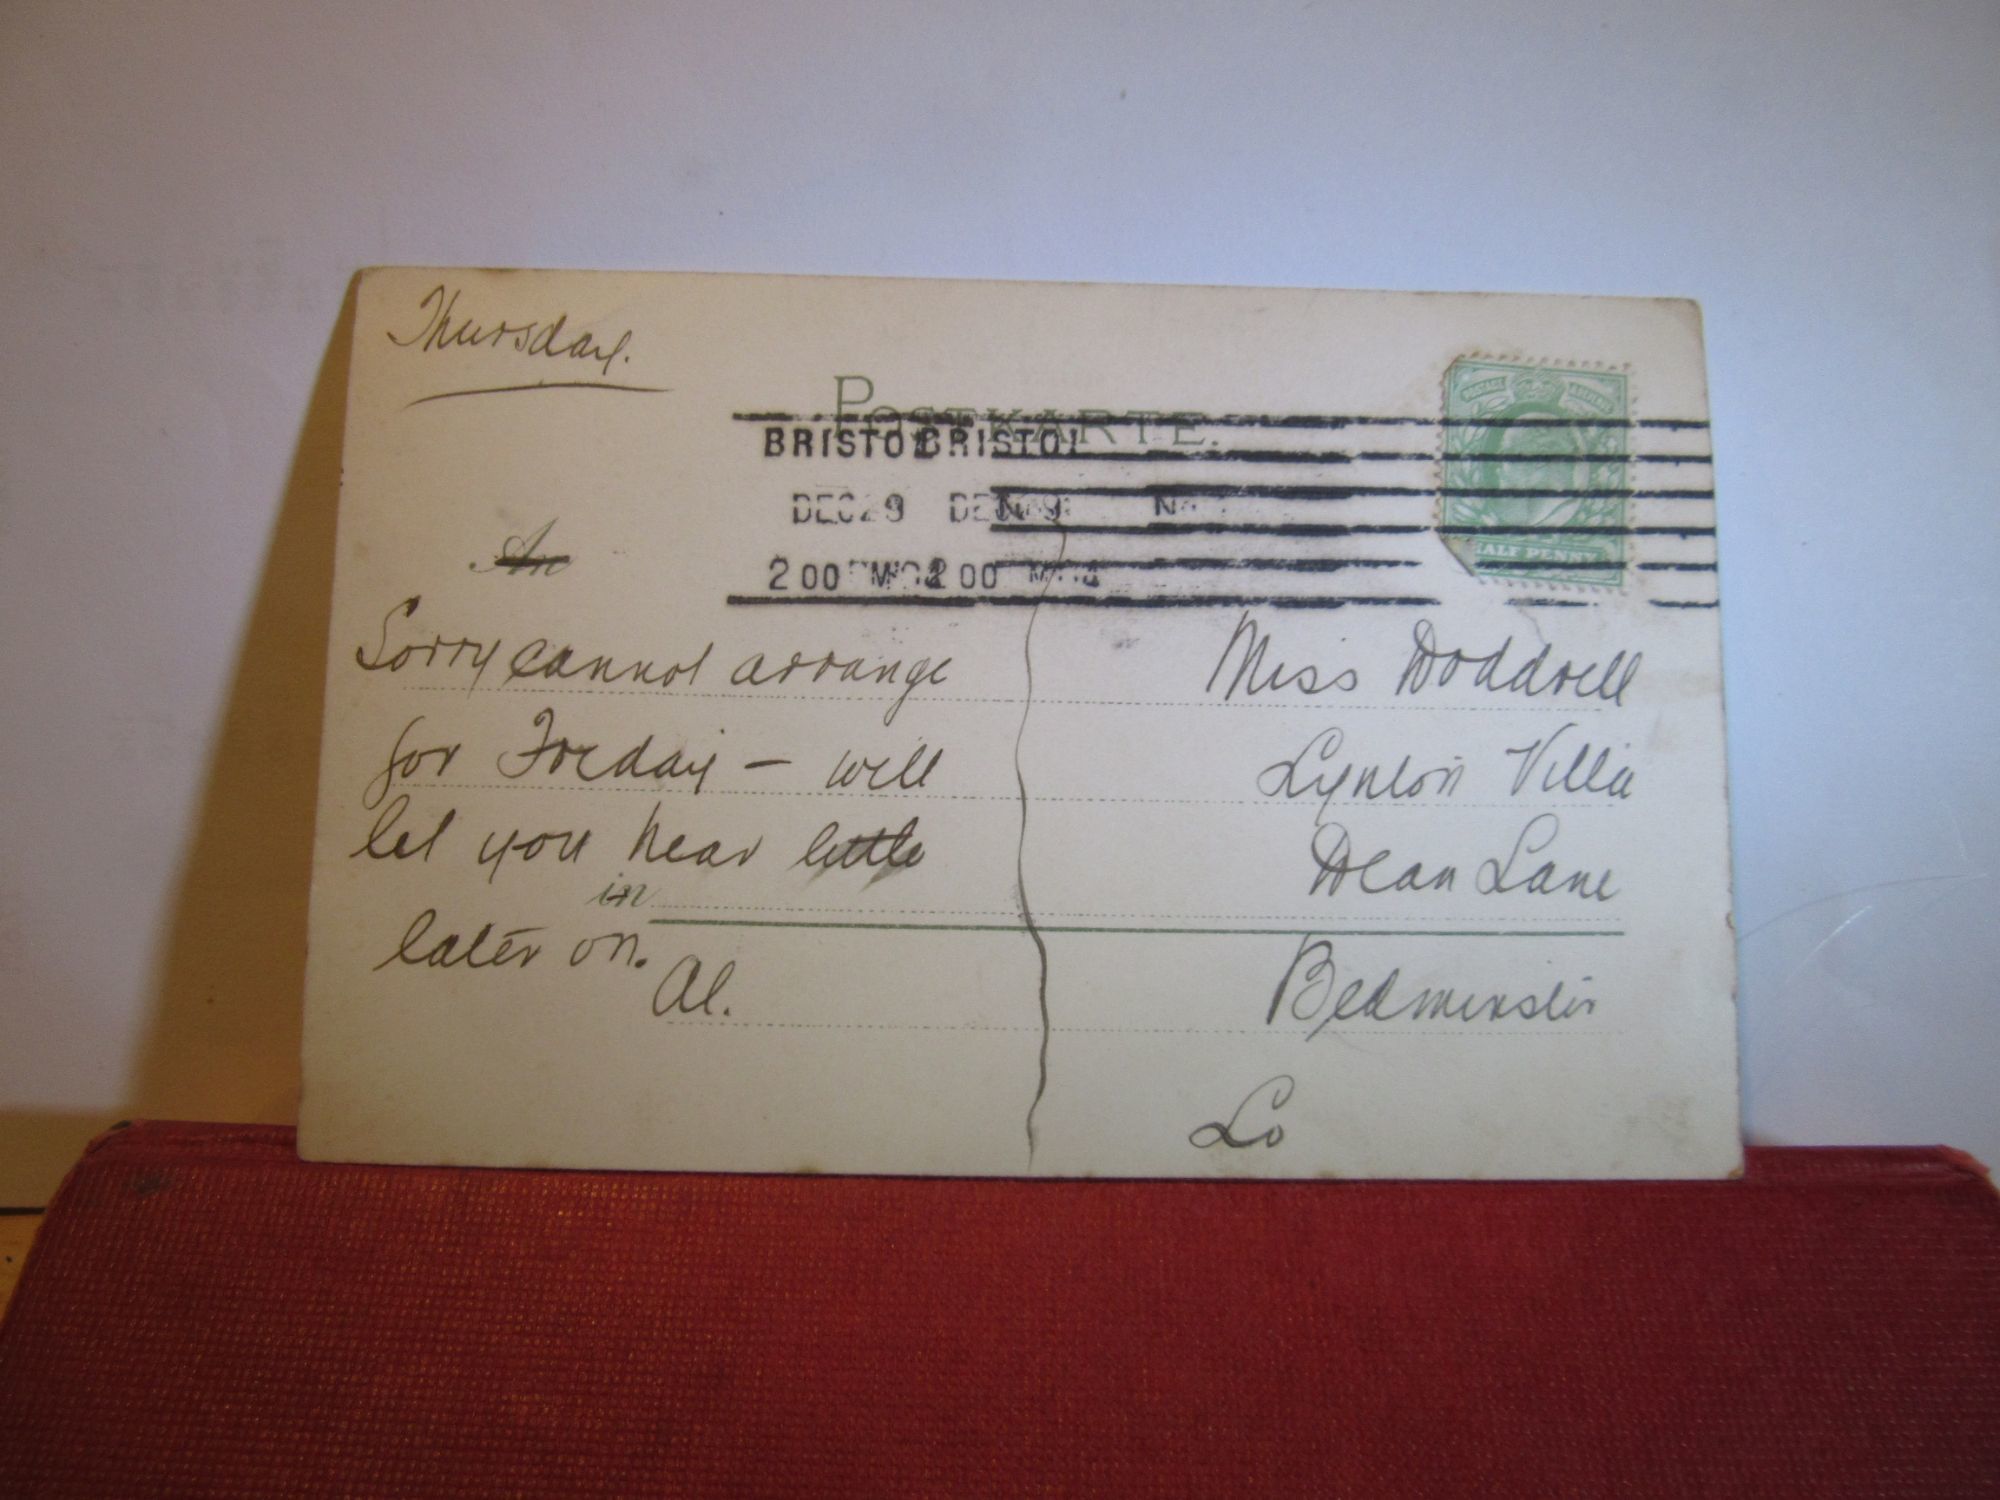 Thursday.
POSTKARTE.
BRISTOL BRISTOL
DEC 29 DEC
2 00 PM 04 2 00
HALF PENNY
An
Sorry cannot arrange
for Friday - will
let you hear little
in
later on.
Al.
Miss Doddrell
Lynton Villa
Dean Lane
Bedminster
Lo